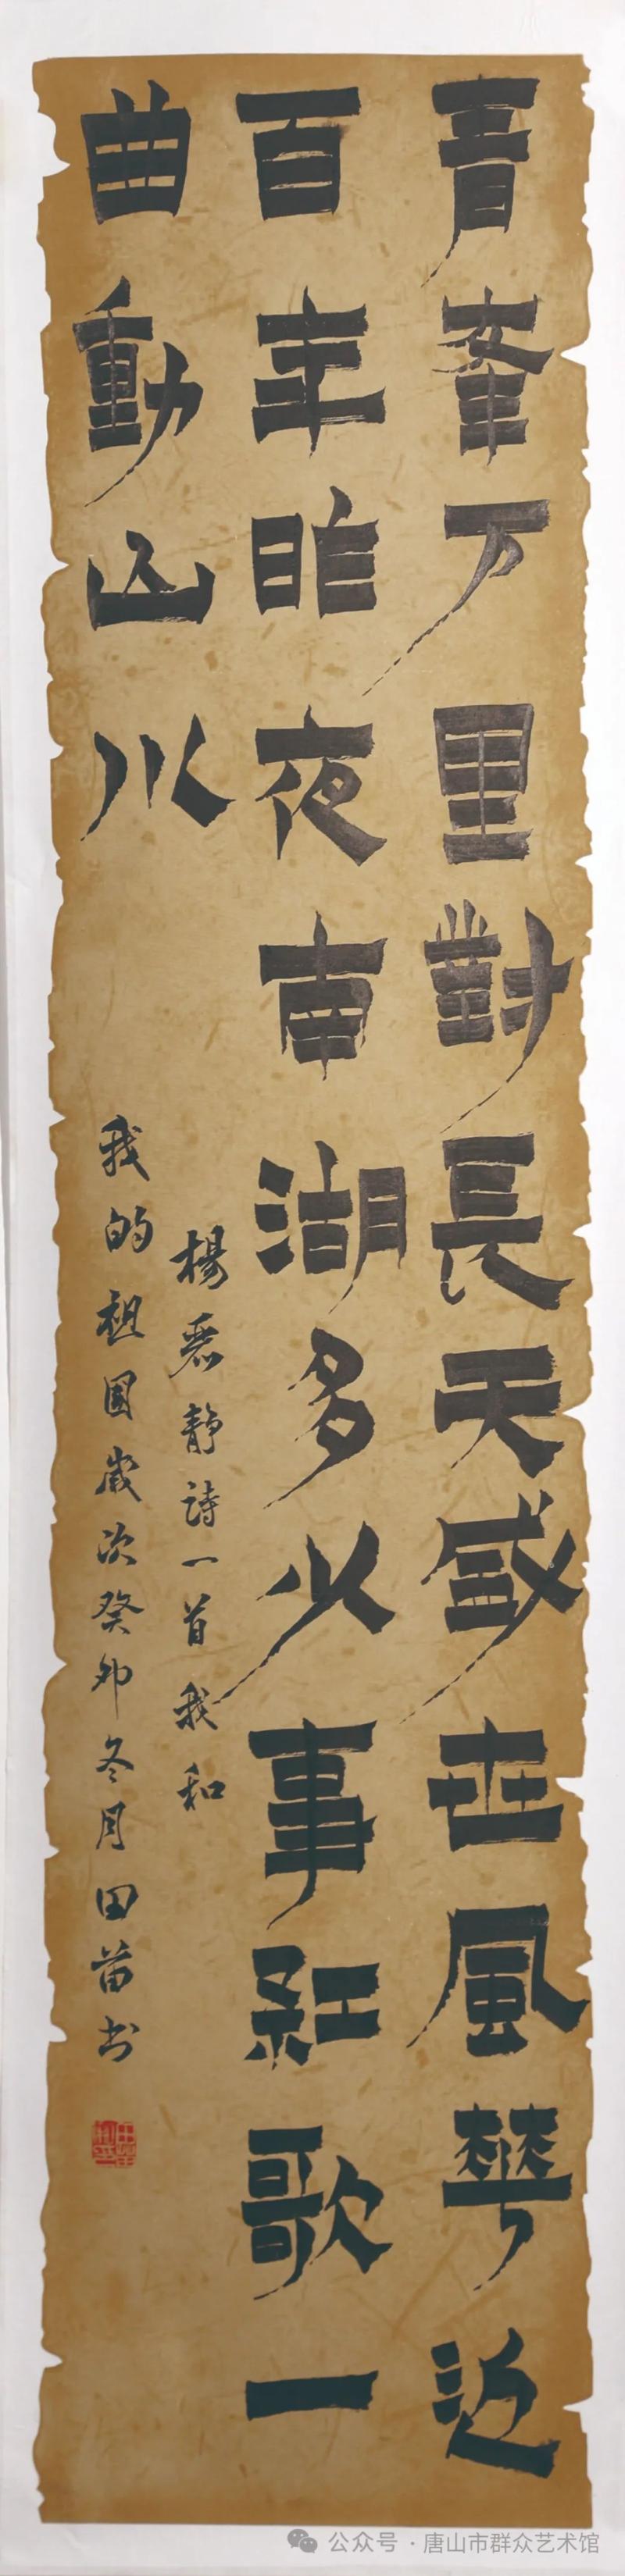 青峯万里對長天盛世風華近
百年昨夜南湖多少事紅歌一
曲動山川
楊君靜詩一首我和
我的祖國歲次癸卯冬月田苗书
公众号·唐山市群众艺术馆